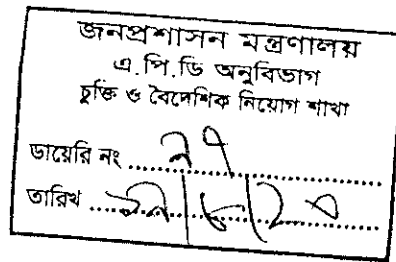 জনপ্রশাসন মন্ত্রণালয়
এ.পি.ডি অনুবিভাগ
চুক্তি ও বৈদেশিক নিয়োগ শাখা
ডায়েরি নং ..... ২৭
তারিখ .....